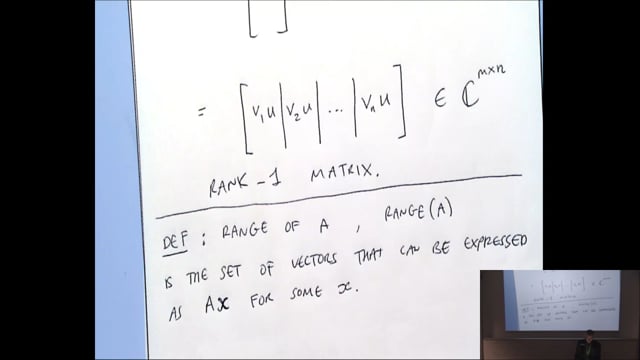 = [ v₁u | v₂u | ... | vₙu ] ∈ ℂ^{m×n}
RANK-1 MATRIX.
DEF: RANGE OF A, RANGE(A)
IS THE SET OF VECTORS THAT CAN BE EXPRESSED
AS Ax FOR SOME x.